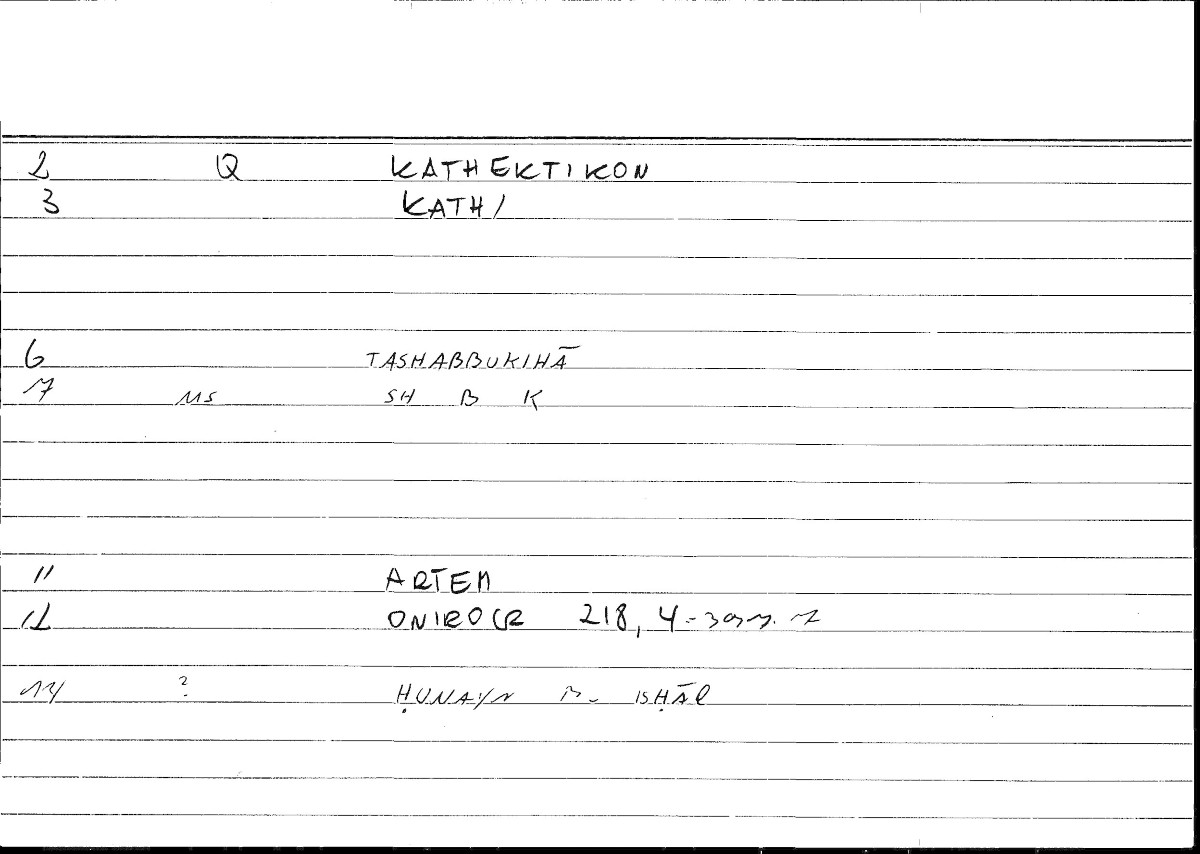 2 Q KATHEKTIKON
3 KATH/
6 TASHABBUKIHĀ
7 MS SH B K
11 ARTEM
12 ONIROCR 218, 4-
14 ? ḤUNAYN B. ISḤĀQ